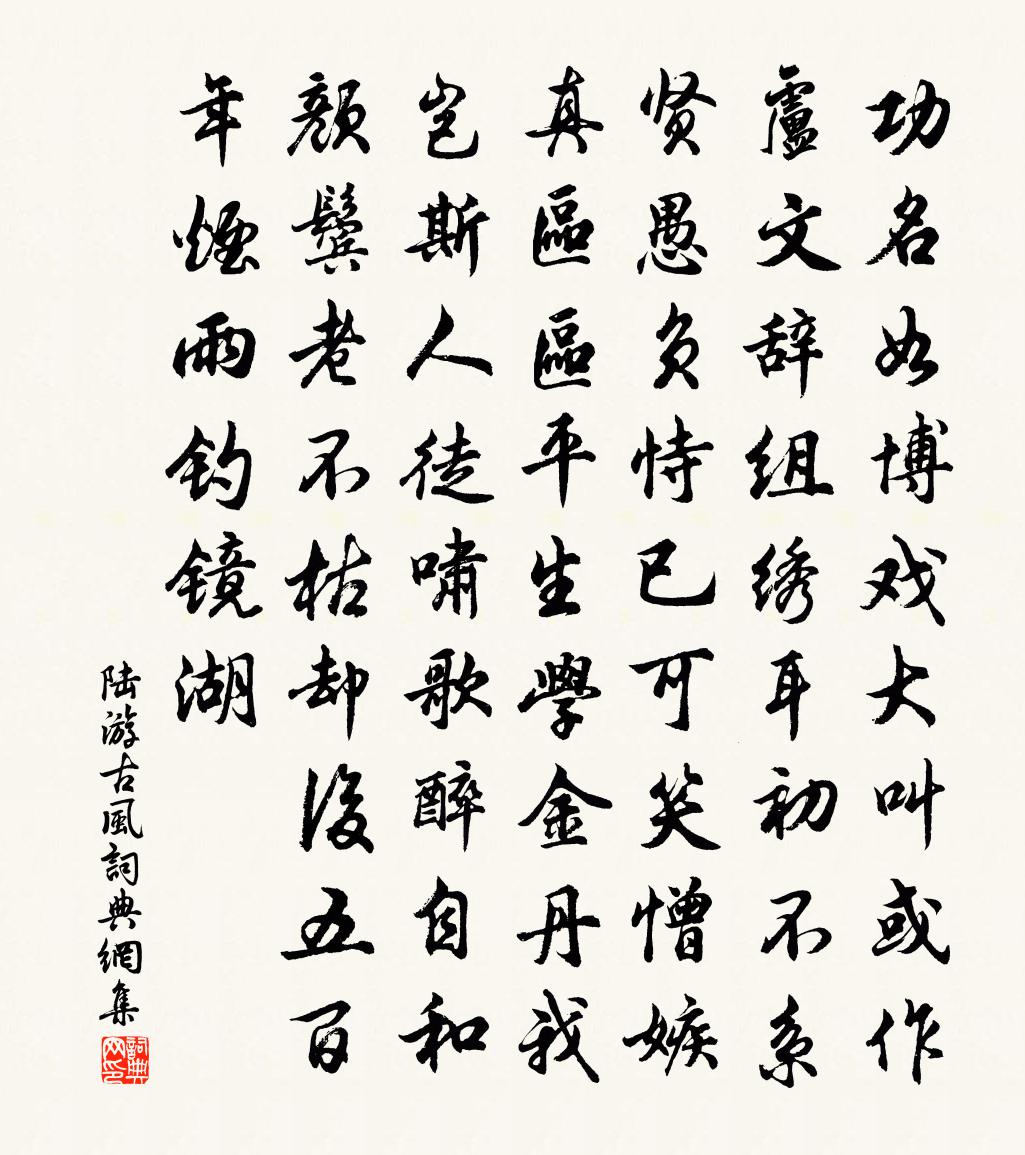 功名如博戏大叫或作
盧文辞组绣耳初不系
贤愚负恃已可笑憎嫉
真區區平生學金丹我
岂斯人徒啸歌醉自和
颜鬓老不枯却後五百
年煙雨钓镜湖
陆游古風詞典網集
詞典网印